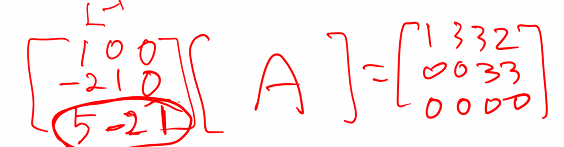 L⁻¹
[1 0 0; -2 1 0; 5 -2 1] [A] = [1 3 3 2; 0 0 3 3; 0 0 0 0]